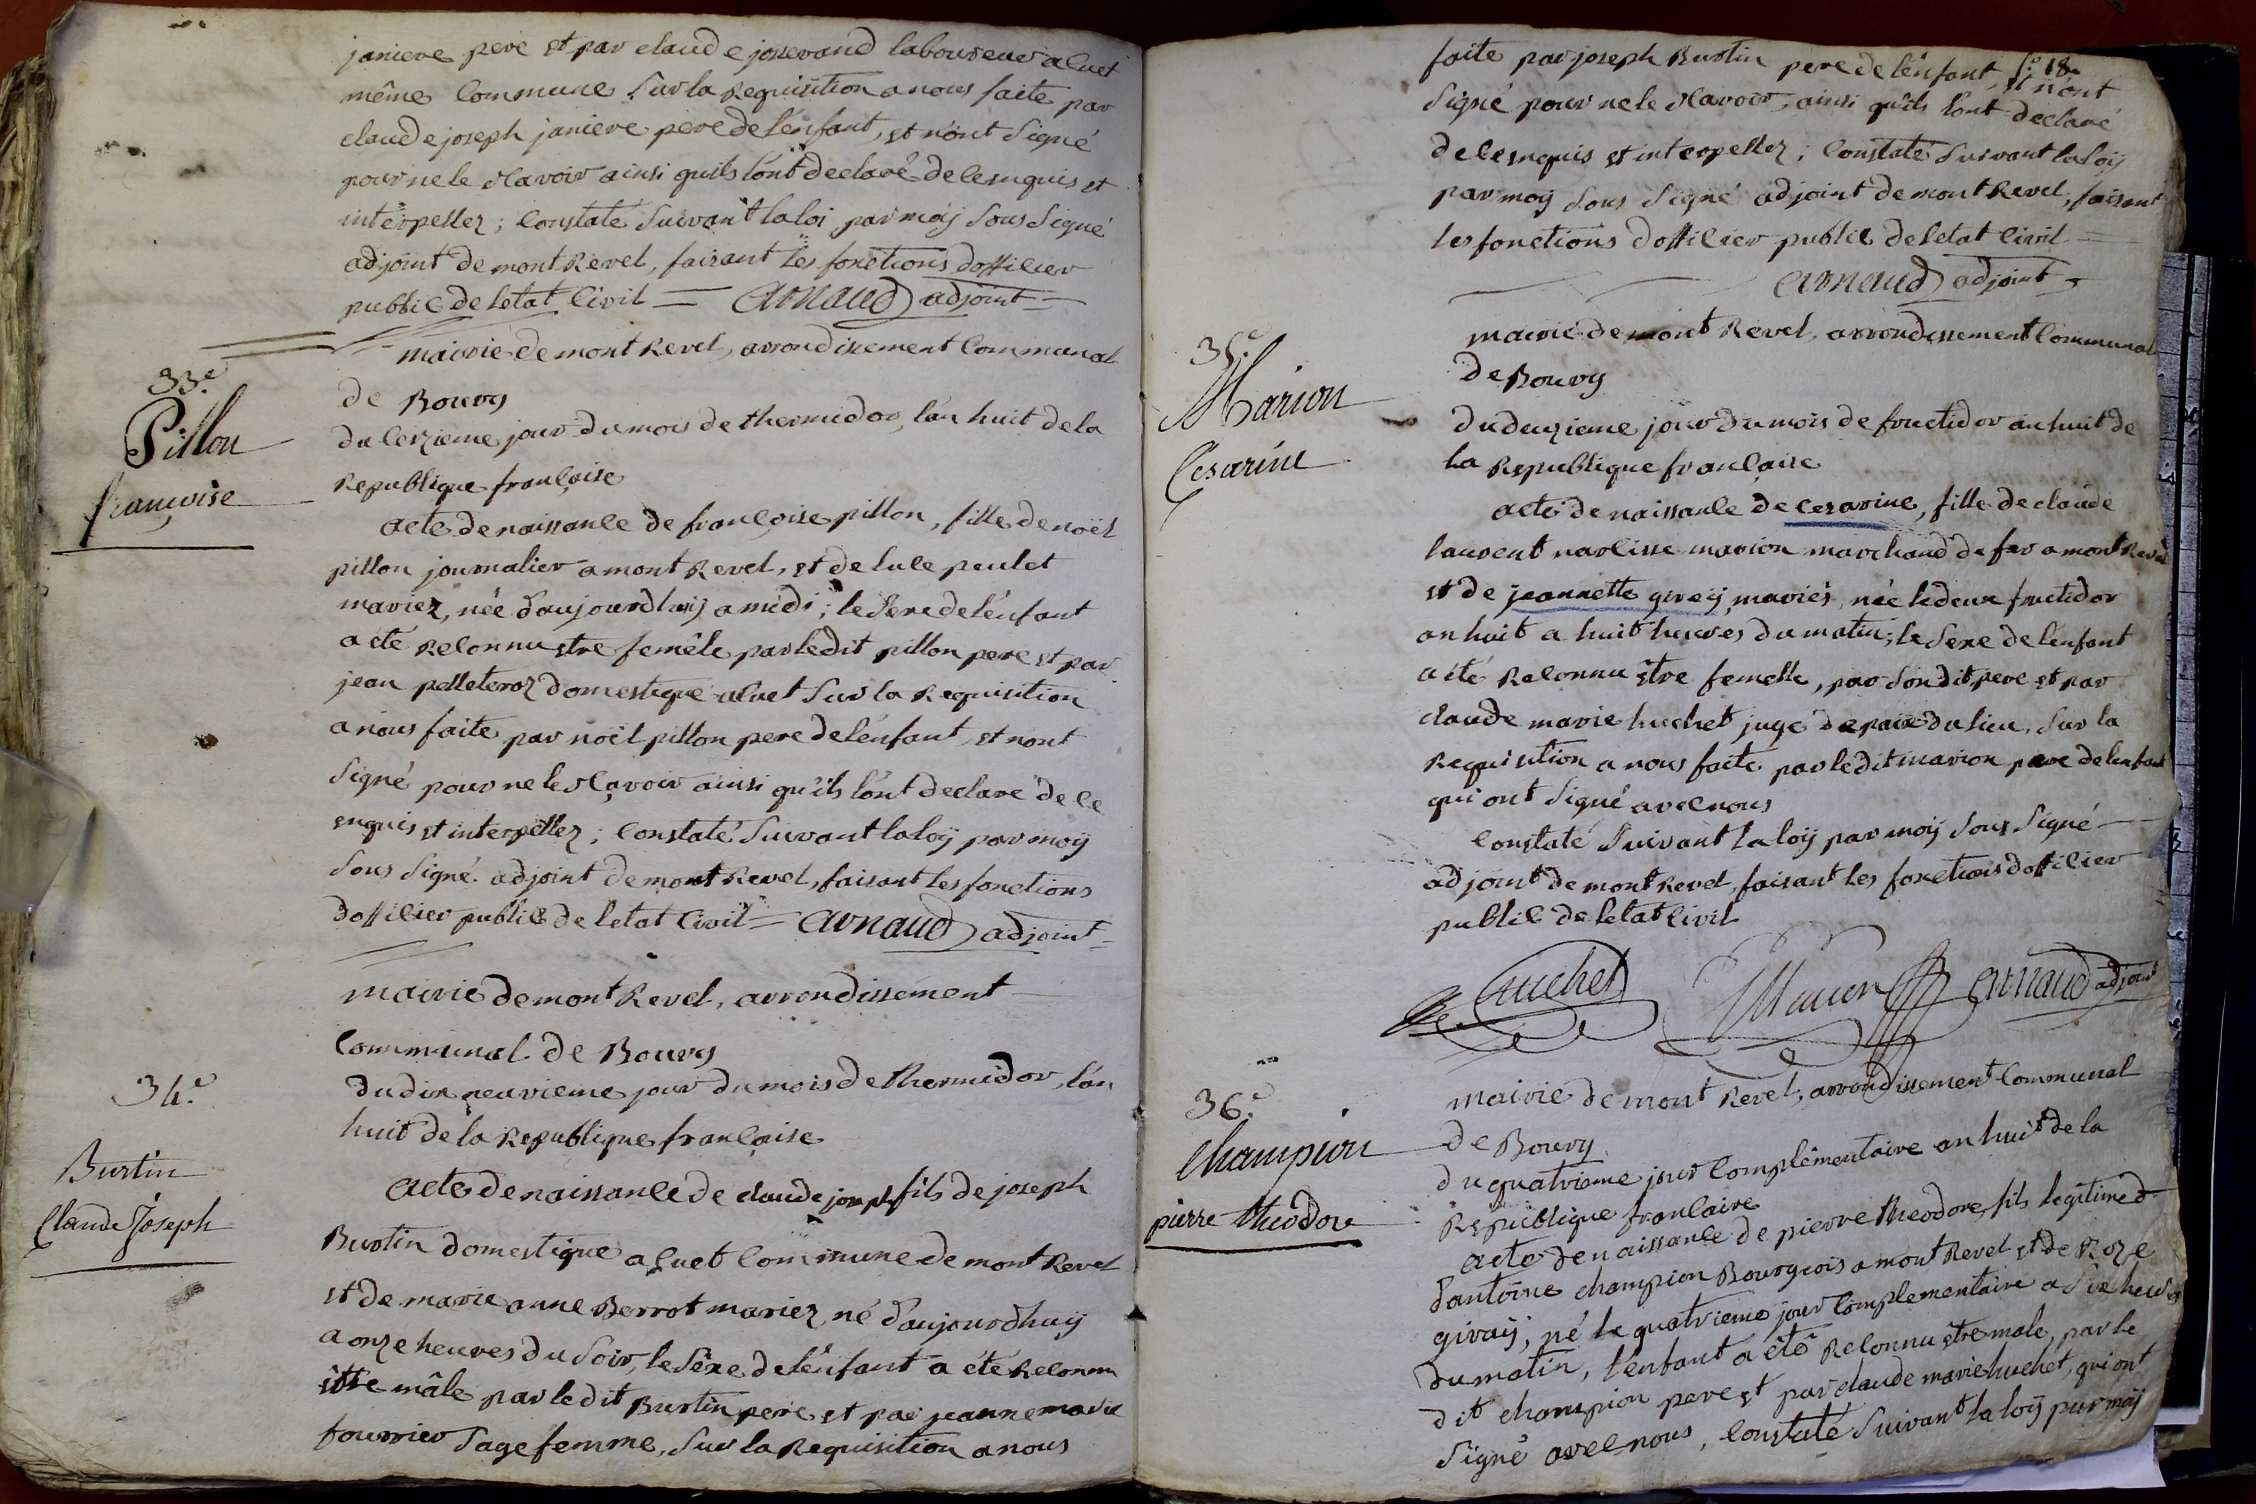 janiere pere et par claude joserand laboureur a Cuet
même Commune Sur la Requisition a nous faite par
claude joseph janiere pere de lénfant, et nónt Signé
pour ne le sCavoir ainsi quils lónt declaré de Ce enquis et
interpellez ; Constaté Suivant la loi par moÿ Sous Signé
adjoint de mont Revel, faisant les fonctions dofficier
public de letat Civil = Arnaud adjoint
33.e
Pillon
françoise
mairie de mont Revel, arrondissement Communal
de Bourg
du Sezieme jour du mois de thermidor, lán huit de la
Republique françaises
acte de naissance de françoise pillon, fille de noël
pillon journalier a mont Revel, et de luce peulet
mariez, née d'aujourdhuij a midi ; le Sexe de lénfant
a été Reconnu etre femêle par ledit pillon pere et par
jean pelleteroz domestique a Cuet Sur la Requisition
a nous faite par noël pillon pere de lénfant et nont
Signé pour ne le sCavoir ainsi qu'ils lónt declaré de Ce
enquis et interpellez ; Constaté Suivant la loÿ par moÿ
Sous Signé adjoint de mont Revel, faisant les fonctions
dofficier public de letat Civil = Arnaud adjoint
34.e
Burtin
Claude Joseph
mairie de mont Revel, arrondissement
Communal de Bourg
du dix neuvieme jour du mois de thermidor, lán
huit de la Republique française
acte de naissance de claude joseph fils de joseph
Burtin domestique a Cuet Commune de mont Revel
et de marie anne Berrot mariez, né d'aujourdhuÿ
a onze heures du Soir, le Sexe de lénfant a été Reconnu
être mâle par le dit Burtin pere et par jeanne marie
fournier Sage femme, Sur la Requisition a nous
f.o 18.
faite par joseph Burtin pere de lénfant, et nónt
Signé pour ne le sCavoir, ainsi quils lónt declaré
de Ce enquis et interpellez ; Constaté Suivant la loÿ
par moÿ Sous Signé adjoint de mont Revel, faisant
les fonctions dofficier public de letat Civil =
Arnaud adjoint
35.e
Marion
Cesarine
mairie de mont Revel, arrondissement Communal
de Bourg
du deuzieme jour du mois de fructidor an huit de
la Republique française
acte de naissance de Cezarine, fille de claude
laurent narcisse marion marchand de fer a mont Revel
et de jeannette girey mariés, née le deux fructidor
an huit a huit heures du matin ; le Sexe de lénfant
a été Reconnu être femelle, par Son dit pere et par
claude marie huchet juge de paix du lieu, Sur la
Requisition a nous faite par ledit marion pere de lenfant
qui ont Signé avec nous
Constaté Suivant la loÿ par moÿ Sous Signé
adjoint de mont Revel, faisant les fonctions dofficier
public de letat Civil
huchet Marion Arnaud adjoint
36.e
Champion
pierre theodore
mairie de mont Revel, arrondissement Communal
de Bourg
du quatrieme jour Complémentaire an huit de la
Republique française
acte de naissance de pierre theodore, fils legitime d
dantoine champion Bourgeois a mont Revel et de Roze
giraÿ ; né le quatrieme jour Complementaire a Six heures
du matin, lénfant a été Reconnu être male, par le
dit champion pere et par claude marie huchet, qui ont
Signé avec nous, Constaté Suivant la loÿ par moÿ